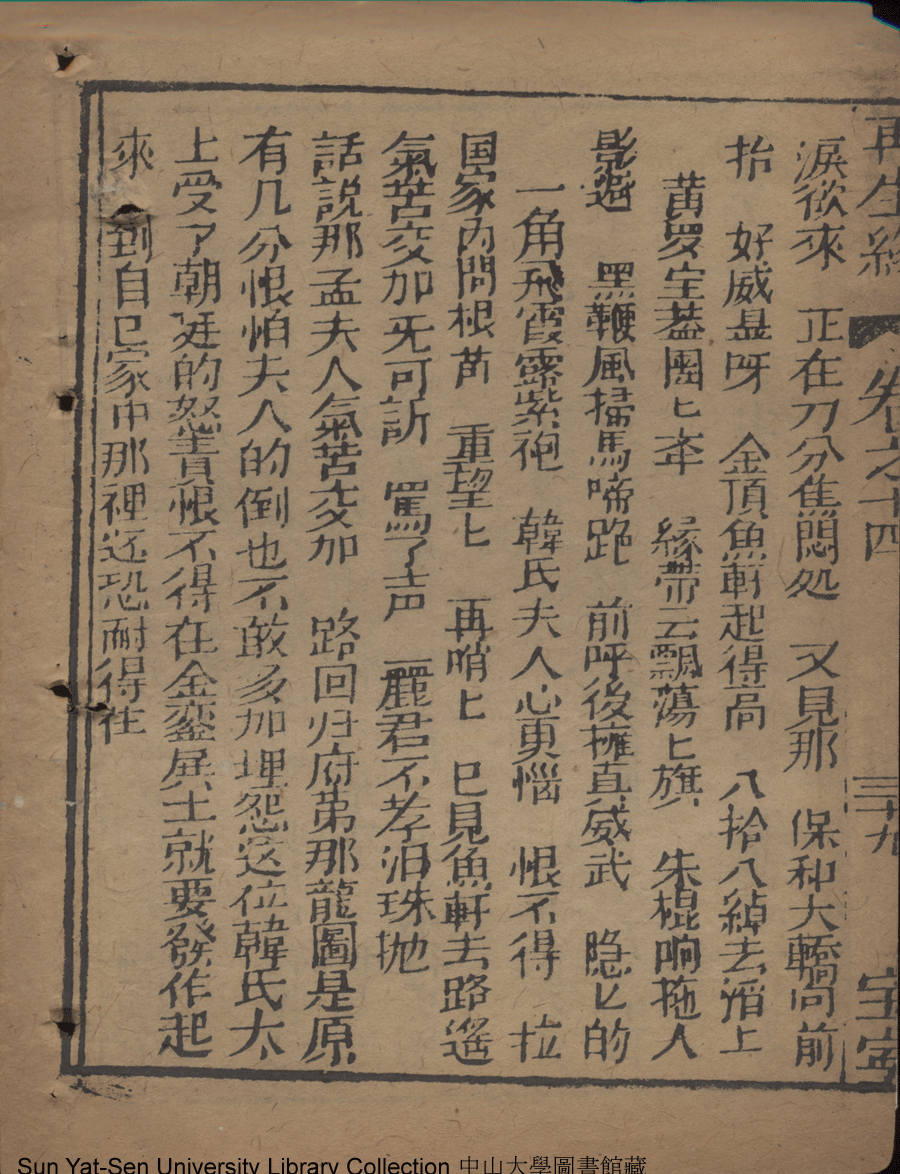 再生緣 卷之十四 三十九
淚欲來 正在刀分焦悶処 又見那 保和大轎向前
抬 好威昰呀 金頂魚軒起得高 八拾八綽去滔上
黄罗宝盖團匕牽 縁帶云飄蕩匕旗 朱棍响拖人
影遥 黑鞭風掃馬啼跑 前呼後擁真威武 隐匕的
一角飛霞露紫袍 韓氏夫人心更惱 恨不得 拉
国家內問根苗 重望匕 再哨匕 巳見魚軒去路遥
氣苦交加旡可訴 罵了声 麗君不孝泪珠抛
話説那孟夫人氣苦交加 路回归府第那龍圖是原
有几分恨怕夫人的倒也不敢多加埋怨这位韓氏太
上受了朝廷的怒責恨不得在金銮展土就要發作起
來 到自巳家中那裡还恐耐得住
Sun Yat-Sen University Library Collection 中山大學圖書館藏